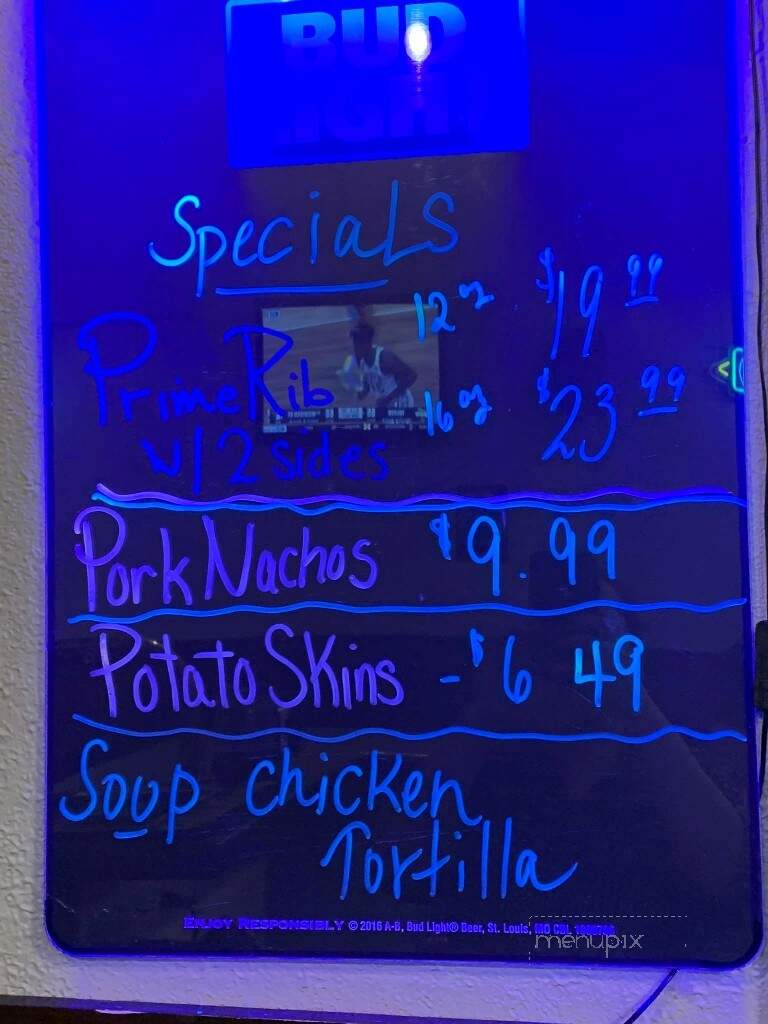 BUD
LIGHT
Specials
12 oz $19 99
Prime Rib
16 oz $23 99
w/ 2 sides
Pork Nachos $9.99
Potato Skins - $6 49
Soup chicken
Tortilla
ENJOY RESPONSIBLY © 2016 A-B, Bud Light® Beer, St. Louis, MO
menupix